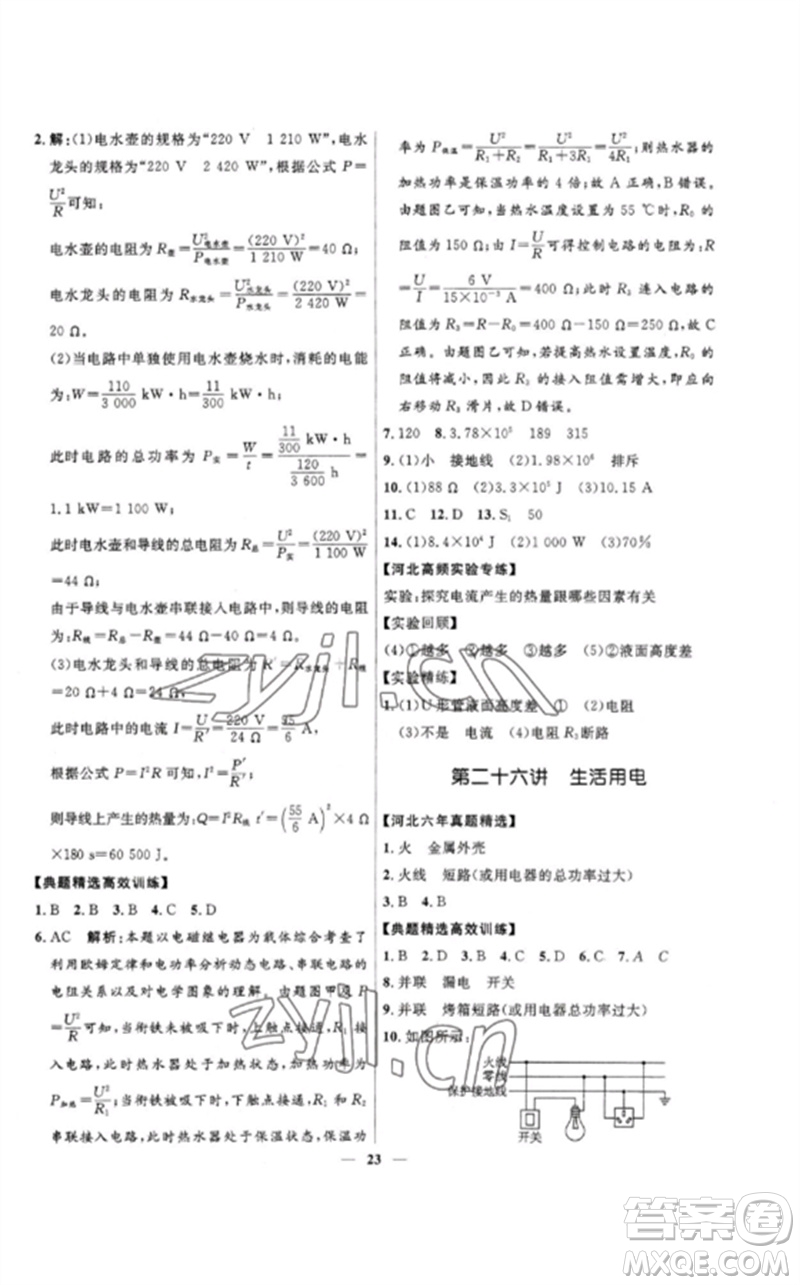 2. 解:(1)电水壶的规格为“220 V　1 210 W”,电水
龙头的规格为“220 V　2 420 W”,根据公式 P=
U²/R 可知:
电水壶的电阻为 R壶=U²电水壶/P电水壶=(220 V)²/1 210 W=40 Ω;
电水龙头的电阻为 R水龙头=U²水龙头/P水龙头=(220 V)²/2 420 W=
20 Ω。
(2)当电路中单独使用电水壶烧水时,消耗的电能
为:W=110/3 000 kW·h=11/300 kW·h;
此时电路的总功率为 P实=W/t=(11/300 kW·h)/(120/3 600 h)=
1.1 kW=1 100 W;
此时电水壶和导线的总电阻为 R总=U²/P实=(220 V)²/1 100 W
=44 Ω;
由于导线与电水壶串联接入电路中,则导线的电阻
为:R线=R总-R壶=44 Ω-40 Ω=4 Ω。
(3)电水龙头和导线的总电阻为 R′=R水龙头+R线
=20 Ω+4 Ω=24 Ω;
此时电路中的电流 I=U/R′=220 V/24 Ω=55/6 A;
根据公式 P=I²R 可知,
则导线上产生的热量为:Q=I²R线 t′=(55/6 A)²×4 Ω
×180 s=60 500 J。
【典题精选高效训练】
1. B　2. B　3. B　4. C　5. D
6. AC　解析:本题以电磁继电器为载体综合考查了
利用欧姆定律和电功率分析动态电路、串联电路的
电阻关系以及对电学图象的理解。由题图甲及 P=
U²/R 可知,当衔铁未被吸下时,上触点接通,R₁ 接
入电路,此时热水器处于加热状态,加热功率为
P加热=U²/R₁;当衔铁被吸下时,下触点接通,R₁ 和 R₂
串联接入电路,此时热水器处于保温状态,保温功
率为 P保温=U²/(R₁+R₂)=U²/(R₁+3R₁)=U²/4R₁;则热水器的
加热功率是保温功率的 4 倍;故 A 正确,B 错误。
由题图乙可知,当热水温度设置为 55 ℃时,R₀ 的
阻值为 150 Ω;由 I=U/R 可得控制电路的电阻为:R
=U/I=6 V/(15×10⁻³ A)=400 Ω,则此时 R₃ 连入电路的
阻值为 R₃=R-R₀=400 Ω-150 Ω=250 Ω,故 C
正确。由题图乙可知,若提高设置温度,R₀ 的阻值
将减小,因此 R₃ 的接入阻值需增大,即应向
右移动 R₃ 滑片,故 D 错误。
7. 120　8. 3.78×10⁵　189　315
9. (1)小　接地线　(2)1.98×10⁶　排斥
10. (1)88 Ω　(2)3.3×10⁵ J　(3)10.15 A
11. C　12. D　13. S₁　50
14. (1)8.4×10⁵ J　(2)1 000 W　(3)70%
【河北高频实验专练】
实验:探究电流产生的热量跟哪些因素有关
【实验回顾】
(4)①越多　②越多　③越多　(5)②液面高度差
【实验精练】
1. (1)U 形管液面高度差　①　(2)电阻
(3)不是　电流　(4)电阻 R₃ 断路
第二十六讲　生活用电
【河北六年真题精选】
1. 火　金属外壳
2. 火线　短路(或用电器的总功率过大)
3. B　4. B
【典题精选高效训练】
1. B　2. D　3. B　4. C　5. B　6. C　7. A　C
8. 并联　漏电　开关
9. 并联　烤箱短路(或用电器总功率过大)
10. 如图所示:
火线
零线
保护接地线
开关
— 23 —
zyjl.cn
zyjl.cn
答案圈
MXQE.COM